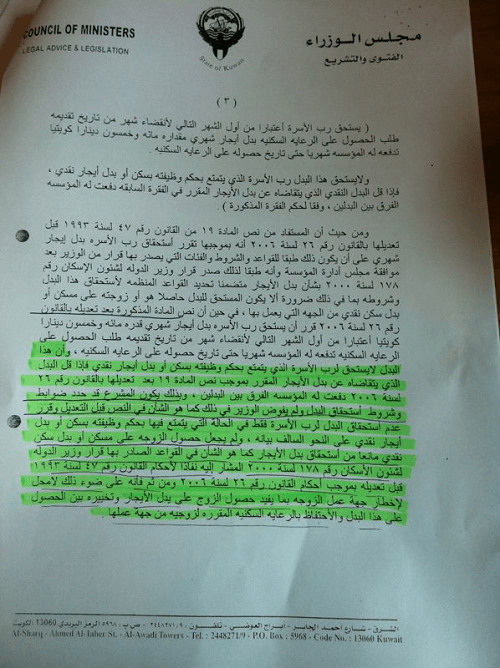 COUNCIL OF MINISTERS
LEGAL ADVICE & LEGISLATION
State of Kuwait
مجلس الوزراء
الفتوى والتشريع
( ٣ )
( يستحق رب الأسرة أعتبارا من أول الشهر التالي لأنقضاء شهر من تاريخ تقديمه
طلب الحصول على الرعايه السكنيه بدل أيجار شهري مقداره مائه وخمسون دينارا كويتيا
تدفعه له المؤسسه شهريا حتى تاريخ حصوله على الرعايه السكنيه .
ولايستحق هذا البدل رب الأسرة الذي يتمتع بحكم وظيفته بسكن أو بدل أيجار نقدي ،
فإذا قل البدل النقدي الذي يتقاضاه عن بدل الأيجار المقرر في الفقرة السابقه دفعت له المؤسسه
الفرق بين البدلين ، وفقا لحكم الفقرة المذكورة ) .
ومن حيث أن المستفاد من نص المادة ١٩ من القانون رقم ٤٧ لسنة ١٩٩٣ قبل
تعديلها بالقانون رقم ٢٦ لسنة ٢٠٠٦ أنه بموجبها تقرر أستحقاق رب الأسره بدل إيجار
شهري على أن يكون ذلك طبقا للقواعد والشروط والفئات التي يصدر بها قرار من الوزير بعد
موافقة مجلس أدارة المؤسسة وأنه طبقا لذلك صدر قرار وزير الدوله لشئون الإسكان رقم
١٧٨ لسنة ٢٠٠٠ بشأن بدل الأيجار متضمنا تحديد القواعد المنظمه لأستحقاق هذا البدل
وشروطه بما في ذلك ضرورة ألا يكون المستحق للبدل حاصلا هو أو زوجته على مسكن أو
بدل سكن نقدي من الجهه التي يعمل بها ، في حين أن نص المادة المذكورة بعد تعديله بالقانون
رقم ٢٦ لسنة ٢٠٠٦ قرر أن يستحق رب الأسره بدل أيجار شهري قدره مائه وخمسون دينارا
كويتيا أعتبارا من أول الشهر التالي لأنقضاء شهر من تاريخ تقديمه طلب الحصول على
الرعايه السكنيه تدفعه له المؤسسه شهريا حتى تاريخ حصوله على الرعايه السكنيه ، وأن هذا
البدل لايستحق لرب الأسرة الذي يتمتع بحكم وظيفته بسكن أو بدل أيجار نقدي فإذا قل البدل
الذي يتقاضاه عن بدل الأيجار المقرر بموجب نص المادة ١٩ بعد تعديلها بالقانون رقم ٢٦
لسنة ٢٠٠٦ دفعت له المؤسسه الفرق بين البدلين ، وبذلك يكون المشرع قد حدد ضوابط
وشروط أستحقاق البدل ولم يفوض الوزير في ذلك كما هو الشأن في النص قبل التعديل وقرر
عدم أستحقاق البدل لرب الأسرة فقط في الحالة التي يتمتع فيها بحكم وظيفته بسكن أو بدل
أيجار نقدي على النحو السالف بيانه ، ولم يجعل حصول الزوجه على مسكن أو بدل سكن
نقدي مانعا من أستحقاق بدل الأيجار كما هو الشأن في القواعد الصادر بها قرار وزير الدوله
لشئون الأسكان رقم ١٧٨ لسنة ٢٠٠٠ المشار إليه نفاذا لأحكام القانون رقم ٤٧ لسنة ١٩٩٣
قبل تعديله بموجب أحكام القانون رقم ٢٦ لسنة ٢٠٠٦ ومن ثم فأنه على ضوء ذلك لامحل
لإخطار جهة عمل الزوجه بما يفيد حصول الزوج على بدل الأيجار وتخييره بين الحصول
على هذا البدل والأحتفاظ بالرعايه السكنيه المقرره لزوجيه من جهة عملها .
الشرق - شارع أحمد الجابر - ابراج العوضي - تلفون : ٢٤٤٨٢٧١/٩ - ص.ب ٥٩٦٨ الرمز البريدي 13060 الكويت
Al-Sharq - Ahmed Al-Jaber St. - Al-Awadi Towers - Tel. : 2448271/9 - P.O. Box : 5968 - Code No. : 13060 Kuwait